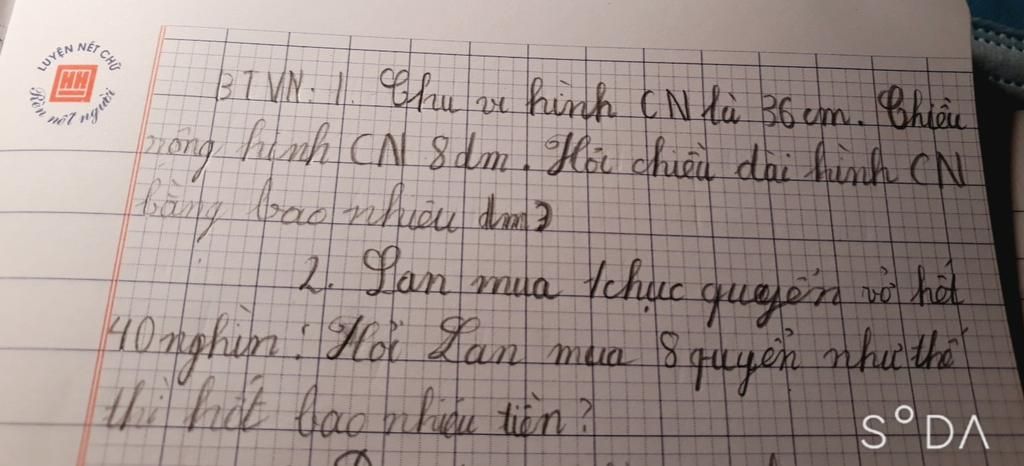 LUYỆN NÉT CHỮ
HH
Rèn nết người
BTVN: 1. Chu vi hình CN là 36cm. Chiều
rộng hình CN 8dm. Hỏi chiều dài hình CN
bằng bao nhiêu dm?
2. Lan mua 1 chục quyển vở hết
40 nghìn. Hỏi Lan mua 8 quyển như thế
thì hết bao nhiêu tiền?
S°DA